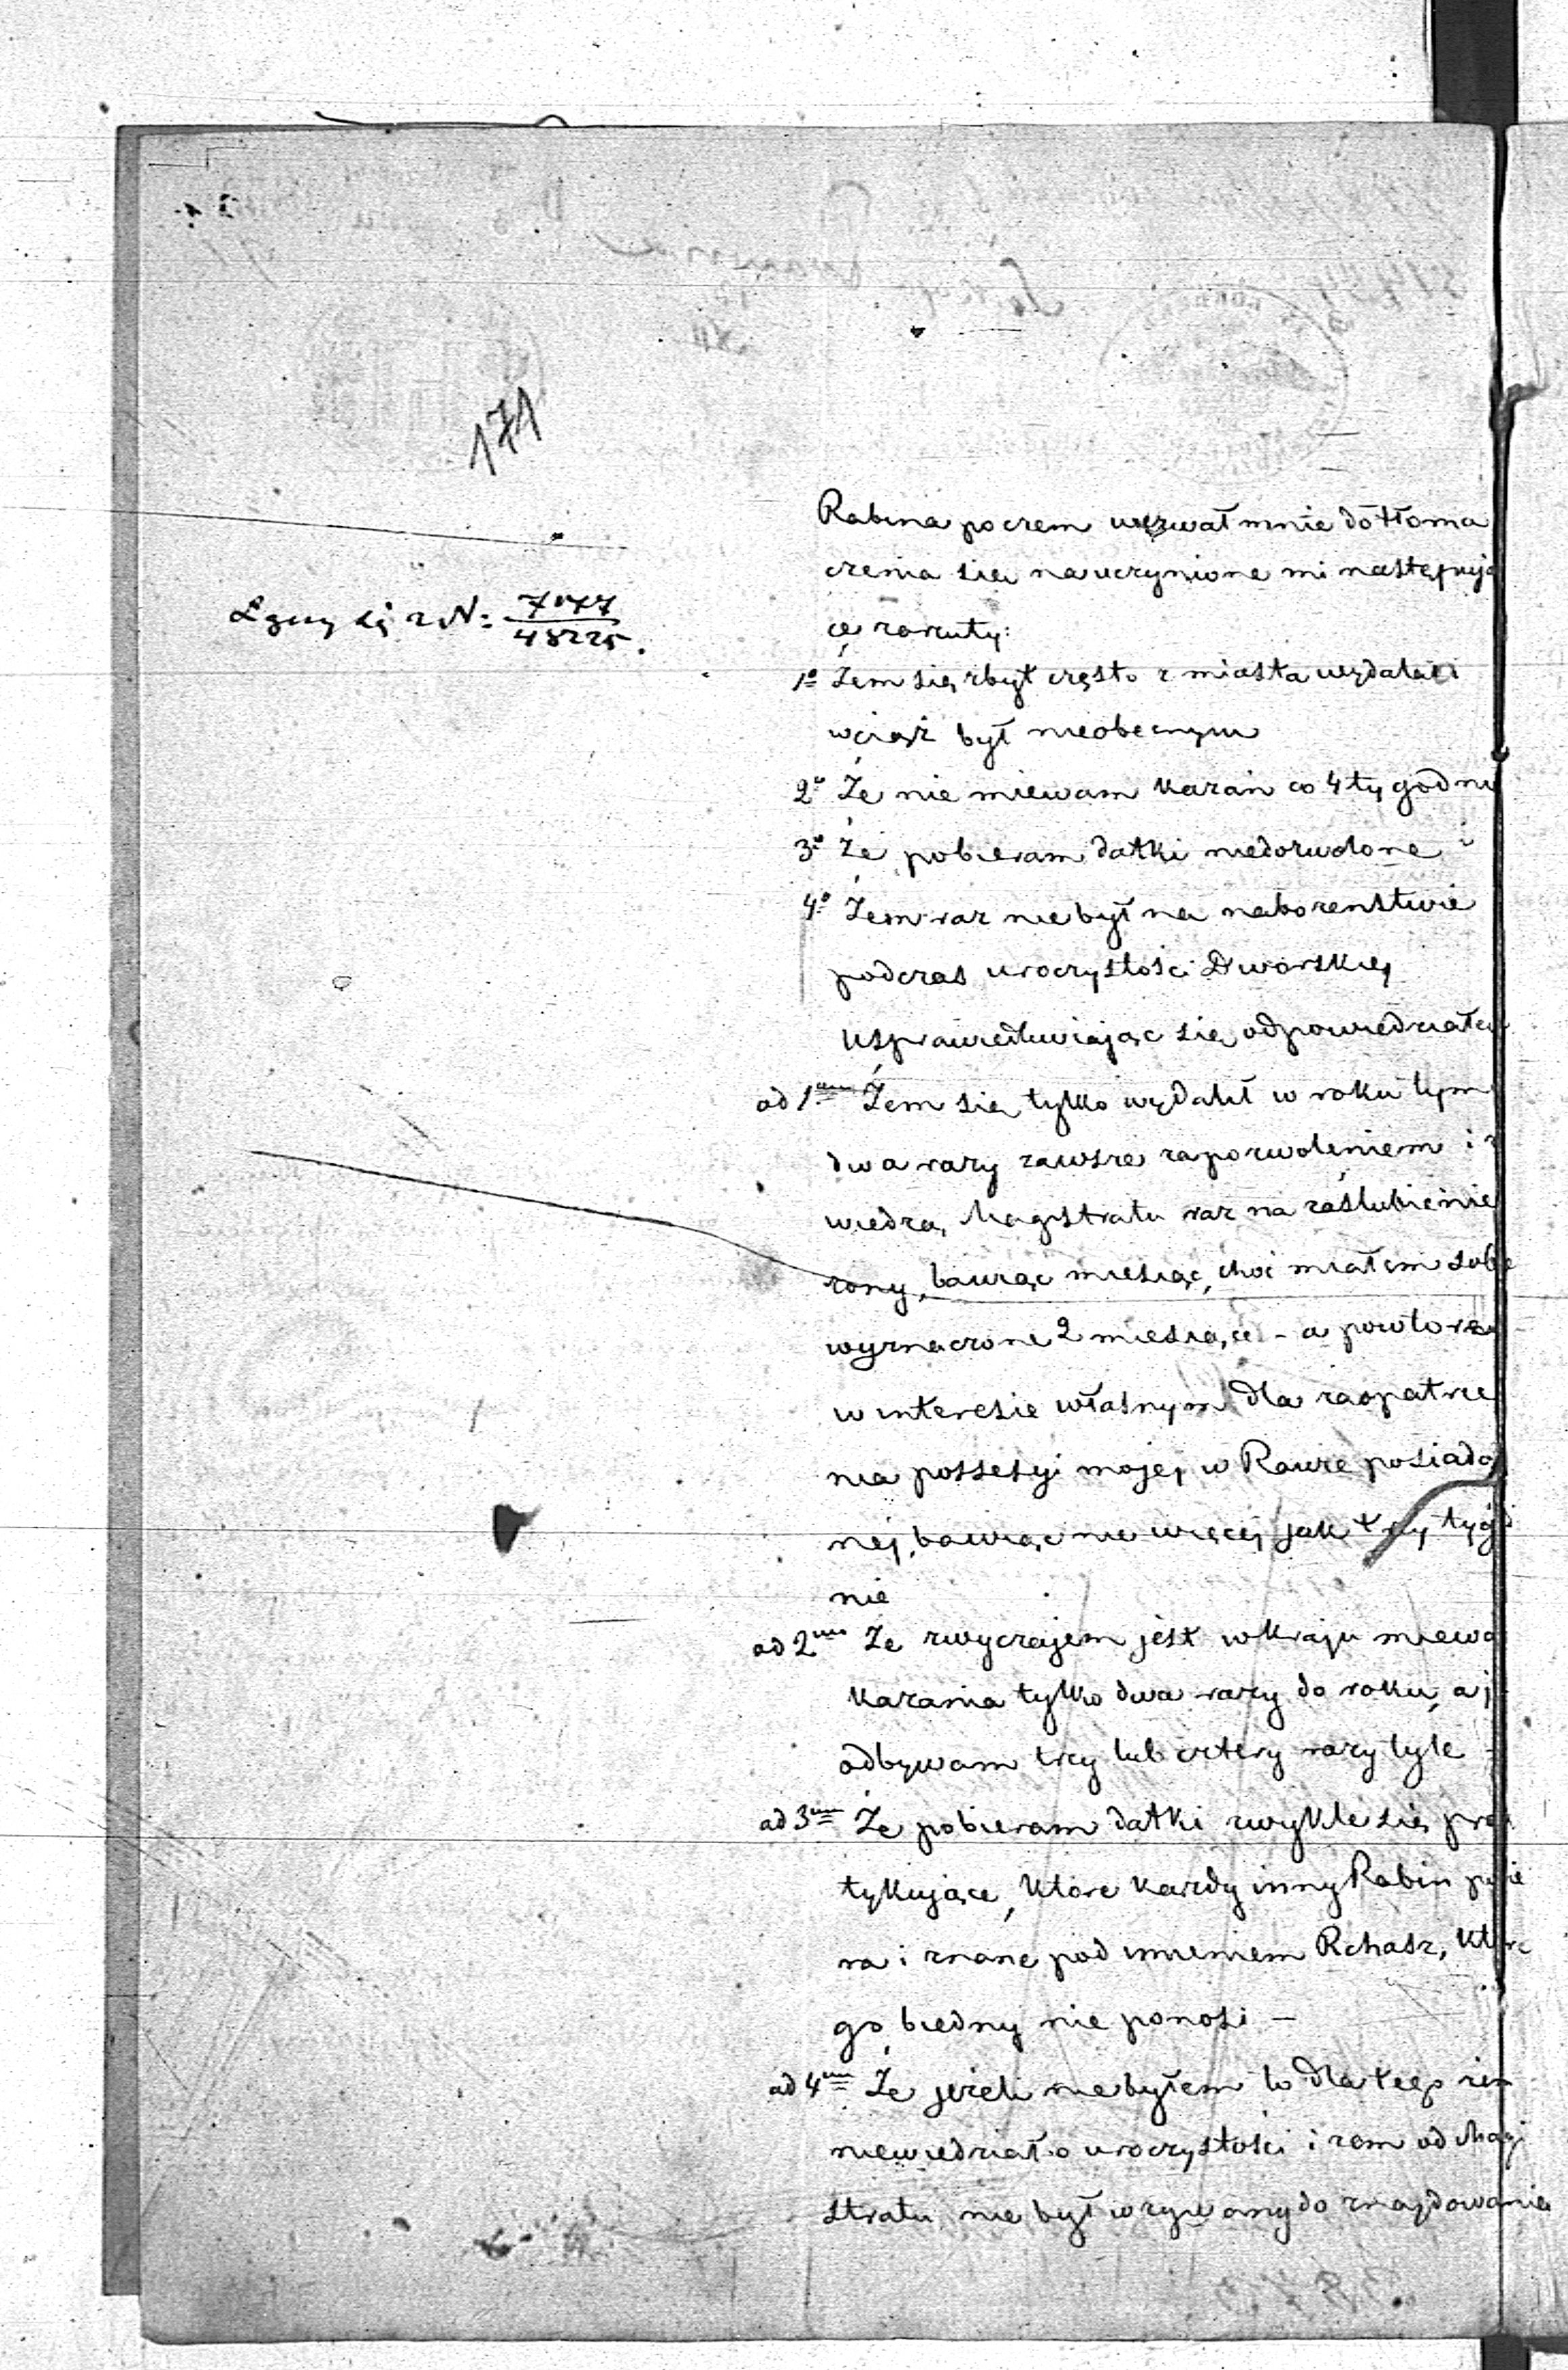 171
Łączy się z N: 7077/48225.
Rabina poczem wezwał mnie do tłoma
czenia się na uczynione mi następują
ce zarzuty:
1º Żem się zbyt często z miasta wydalał i
wciąż był nieobecnym
2º Że nie miewam kazań co 4 tygodni
3º Że pobieram datki niedozwolone i
4º Żem raz nie był na nabożenstwie
podczas uroczystości Dworskiej
Usprawiedliwiając się odpowiedziałem
ad 1um Żem się tylko wydalił w roku tym
dwa razy zawsze za pozwoleniem i z
wiedzą Magistratu raz na zaślubienie
żony, bawiąc miesiąc, choć miałem sobie
wyznaczone 2 miesiące - a powtóre
w interesie własnym dla zaopatrze
nia possesyi mojej w Rawie posiada
nej, bawiąc nie więcej jak trzy tygo
nie
ad 2um Że zwyczajem jest w kraju miewać
kazania tylko dwa razy do roku, a ja
odbywam trzy lub cztery razy tyle -
ad 3um Że pobieram datki zwykle się prak
tykujące, które każdy inny Rabin pobie
ra i znane pod imieniem Rchasz, które
go biedny nie ponosi -
ad 4um Że jeżeli nie byłem to dla tego żem
niewiedział o uroczystości i żem od Magi
stratu nie był wzywany do znajdowania